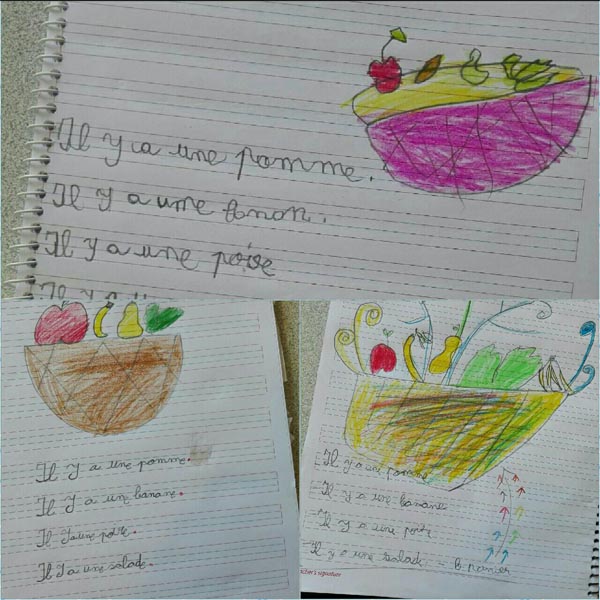 Il y a une pomme.
Il y a une banan.
Il y a une poire
Il y a une pomme.
Il y a une banane.
Il y a une poire.
Il y a une salade.
Il y a une pomme
Il y a une banane
Il y a une
Il y a une salade panier
teacher's signature